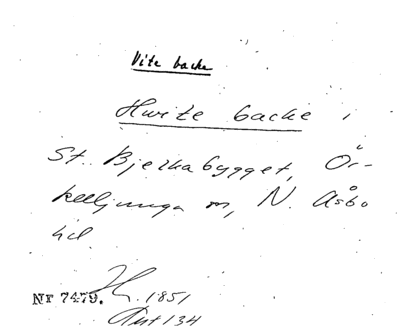 Vite backe
Hwite backe i
St. Bjerkabygget, Ör-
kelljunga sn, N. Åsbo
hd.
Nr 7479. 1851
Ant 134